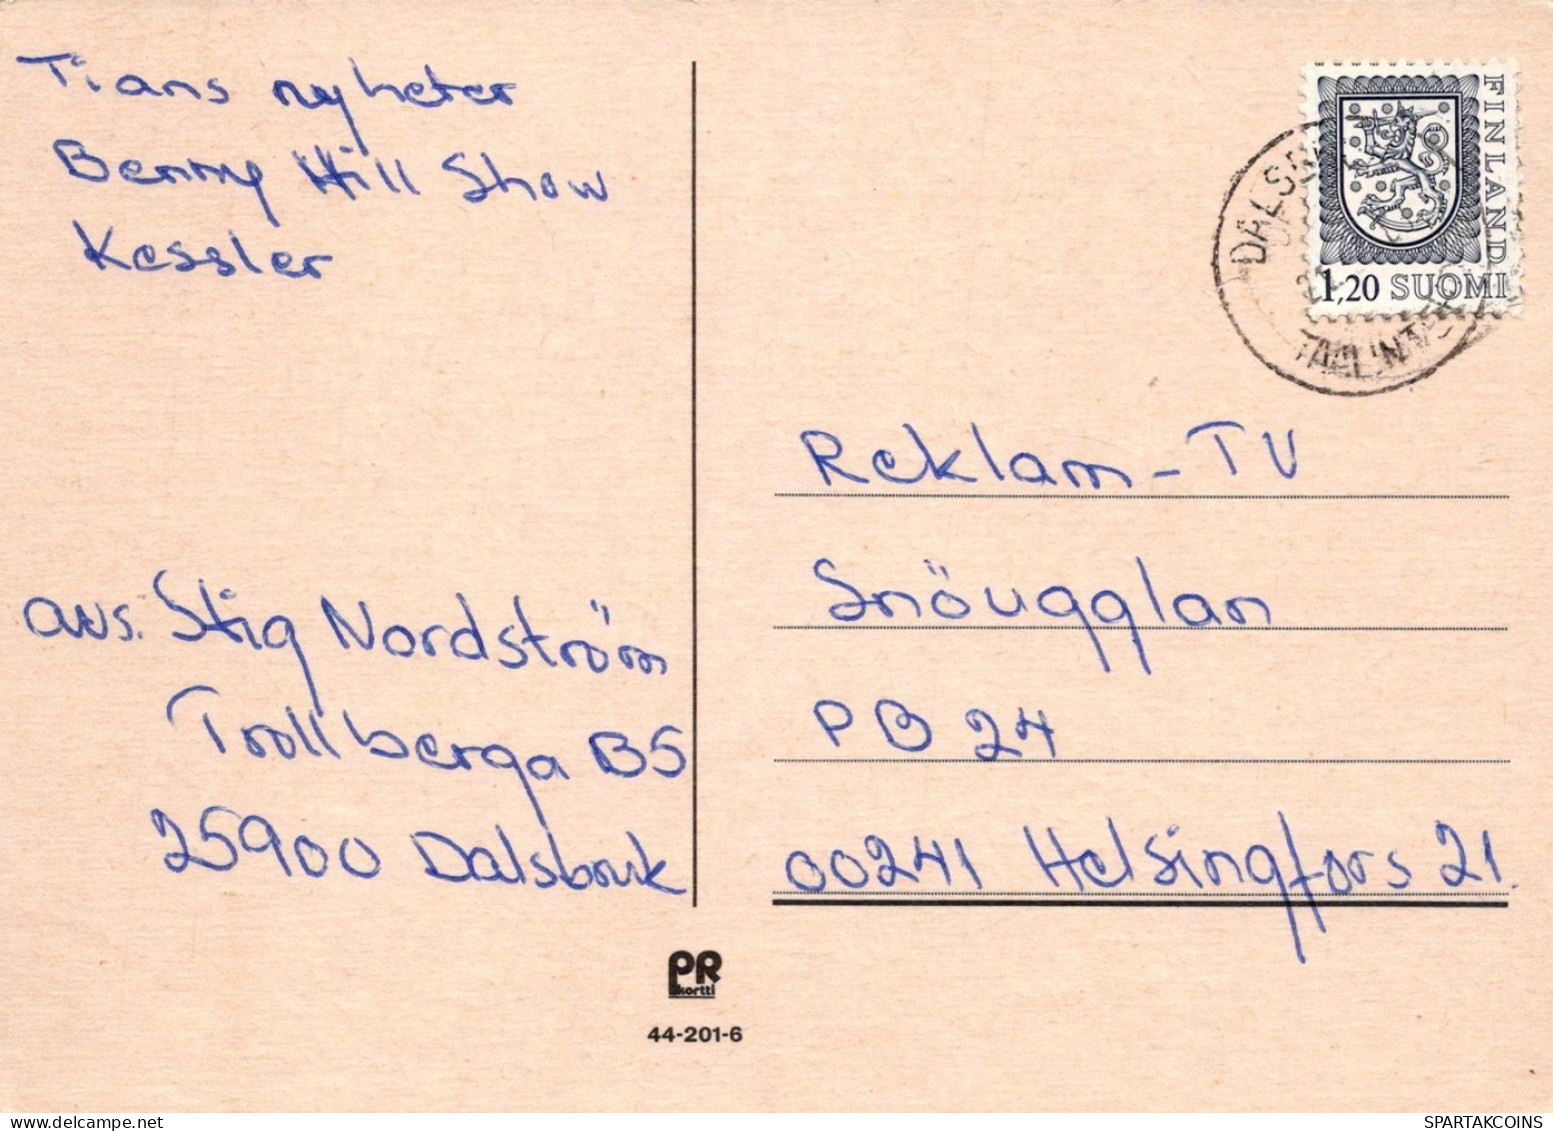 Tians nyheter
Benny Hill Show
Kessler
avs. Stig Nordström
Trollberga B5
25900 Dalsbruk
FINLAND
1,20 SUOMI
Reklam-TV
Snöugglan
PB 24
00241 Helsingfors 21.
PR
kortti
44-201-6
SPARTAKCOINS